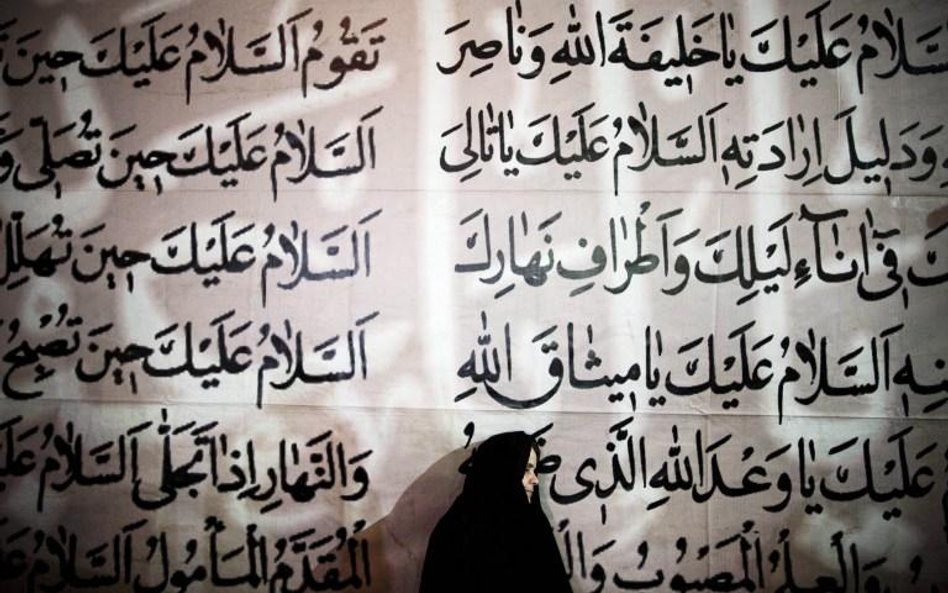 السَّلامُ عَلَيْكَ يا خَلِيفَةَ اللهِ وَناصِرَ
وَدَلِيلَ اِرادَتِهِ اَلسَّلامُ عَلَيْكَ يا تالِيَ
فِي اناءِ لَيْلِكَ وَاَطْرافِ نَهارِكَ
اَلسَّلامُ عَلَيْكَ يا مِيثاقَ اللهِ
عَلَيْكَ يا وَعْدَ اللهِ الَّذِي
وَالْعِلْمُ الْمَصْبُوبُ
تَقُومُ اَلسَّلامُ عَلَيْكَ حِينَ
اَلسَّلامُ عَلَيْكَ حِينَ تُصَلِّي وَ
اَلسَّلامُ عَلَيْكَ حِينَ تُهَلِّلُ
اَلسَّلامُ عَلَيْكَ حِينَ تُصْبِحُ
وَالنَّهارِ اِذا تَجَلّى اَلسَّلامُ
الْمُقَدَّمُ الْمَأْمُولُ اَلسَّلامُ